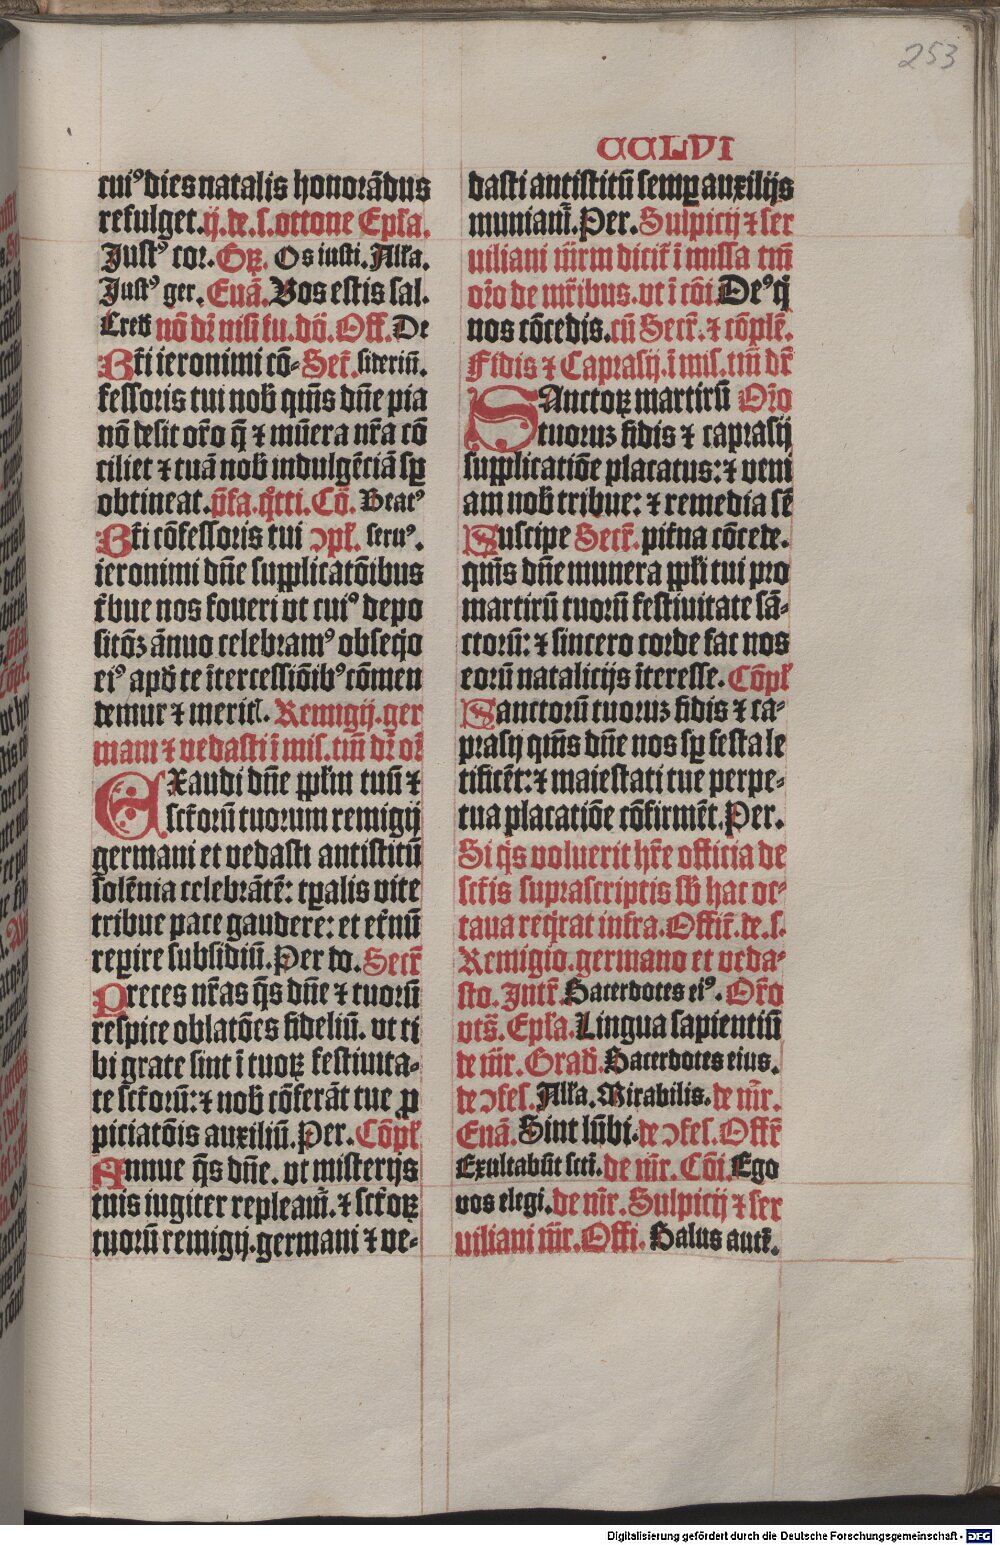 253
CCLVI
cuiꝰ dies natalis honorãdus
refulget. ij. de. s. ottone Epl̃a.
Justꝰ cor. Gꝝ. Os iusti. All̃a.
Justꝰ ger. Euã. Vos estis sal.
Cred nõ dr̃ nisi fu. dõ. Off. De
Bt̃i ieronimi cõ- Secr̃. siteriũ.
fessoris tui nob̃ qm̃s dñe pia
nõ desit or̃o q̃ ⁊ mũera nr̃a cõ
ciliet ⁊ tuã nob̃ indulgẽciã sꝑ
obtineat. p̃fa. q̃tti. Cõ. Beatꝰ
Bt̃i cõfessoris tui ↄpl̃. seruꝰ.
ieronimi dñe supplicatõibus
t̃bue nos foueri vt cuiꝰ depo
sitõꝫ ãnuo celebramꝰ obseq̃o
eiꝰ apd̃ te ĩtercessiõibꝰ cõmen
demur ⁊ merit̃. Remigij. ger
mani ⁊ vedasti ĩ mis. tm̃ dr̃ or̃
EXaudi dñe ppl̃m tuũ ⁊
sct̃orũ tuorum remigij
germani et vedasti antistitũ
solẽnia celebrãtẽ: tꝑalis vite
tribue pace gaudere: et et̃nũ
reꝑire subsidiũ. Per do. Secr̃
Preces nr̃as q̃s dñe ⁊ tuorũ
respice oblatões fideliũ. vt ti
bi grate sint ĩ tuoꝝ festiuita-
te sct̃orũ: ⁊ nob̃ cõferãt tue ꝓ
piciatõis auxiliũ. Per. Cõpl̃
Annue q̃s dñe. vt misterijs
tuis iugiter repleam̃. ⁊ sct̃oꝝ
tuorũ remigij. germani ⁊ ve-
dasti antistitũ semꝑ auxilijs
muniam̃. Per. Sulpicij ⁊ ser
uiliani m̃rm dicit̃ ĩ missa tm̃
or̃o de mr̃ibus. vt ĩ cõi. Deꝰ q̃
nos cõcedis. cũ Secr̃. ⁊ cõplẽ.
Fidis ⁊ Caprasij. ĩ mis. tm̃ dr̃
SAnctoꝝ martirũ Or̃o
tuoruꝫ fidis ⁊ caprasij
supplicatiõe placatus: ⁊ veni
am nob̃ tribue: ⁊ remedia sẽ
Suscipe Secr̃. pit̃na cõcede.
qm̃s dñe munera ppl̃i tui pro
martirũ tuorũ festiuitate sã-
ctorũ: ⁊ sincero corde fac nos
eorũ natalicijs ĩteresse. Cõpl̃
Sanctorũ tuoruꝫ fidis ⁊ ca-
prasij qm̃s dñe nos sꝑ festa le
tificẽt: ⁊ maiestati tue perpe-
tua placatiõe cõfirmẽt. Per.
Si q̃s voluerit hr̃e officia de
sct̃is suprascriptis sb̃ hac oc-
taua req̃rat infra. Offit̃. de. s.
Remigio. germano et veda-
sto. Jntr̃. Sacerdotes eiꝰ. Or̃o
vts̃. Epl̃a. Lingua sapientiũ
de m̃r. Grad̃. Sacerdotes eius.
de ↄfes. All̃a. Mirabilis. de m̃r.
Euã. Sint lũbi. de ↄfes. Offr̃
Exultabũt sct̃i. de m̃r. Cõi. Ego
vos elegi. de m̃r. Sulpicij ⁊ ser
uiliani m̃r. Offi. Salus autẽ.
Digitalisierung gefördert durch die Deutsche Forschungsgemeinschaft - DFG